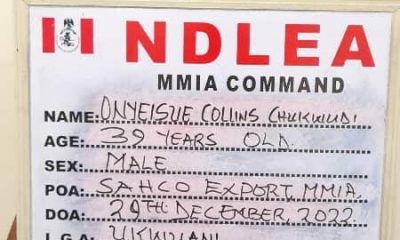 NDLEA
MMIA COMMAND
NAME: ONYEISUE COLLINS CHUKWUDI
AGE: 39 YEARS OLD
SEX: MALE
POA: SAHCO EXPORT, MMIA
DOA: 29TH DECEMBER, 2022
L.G.A: UKWUANI